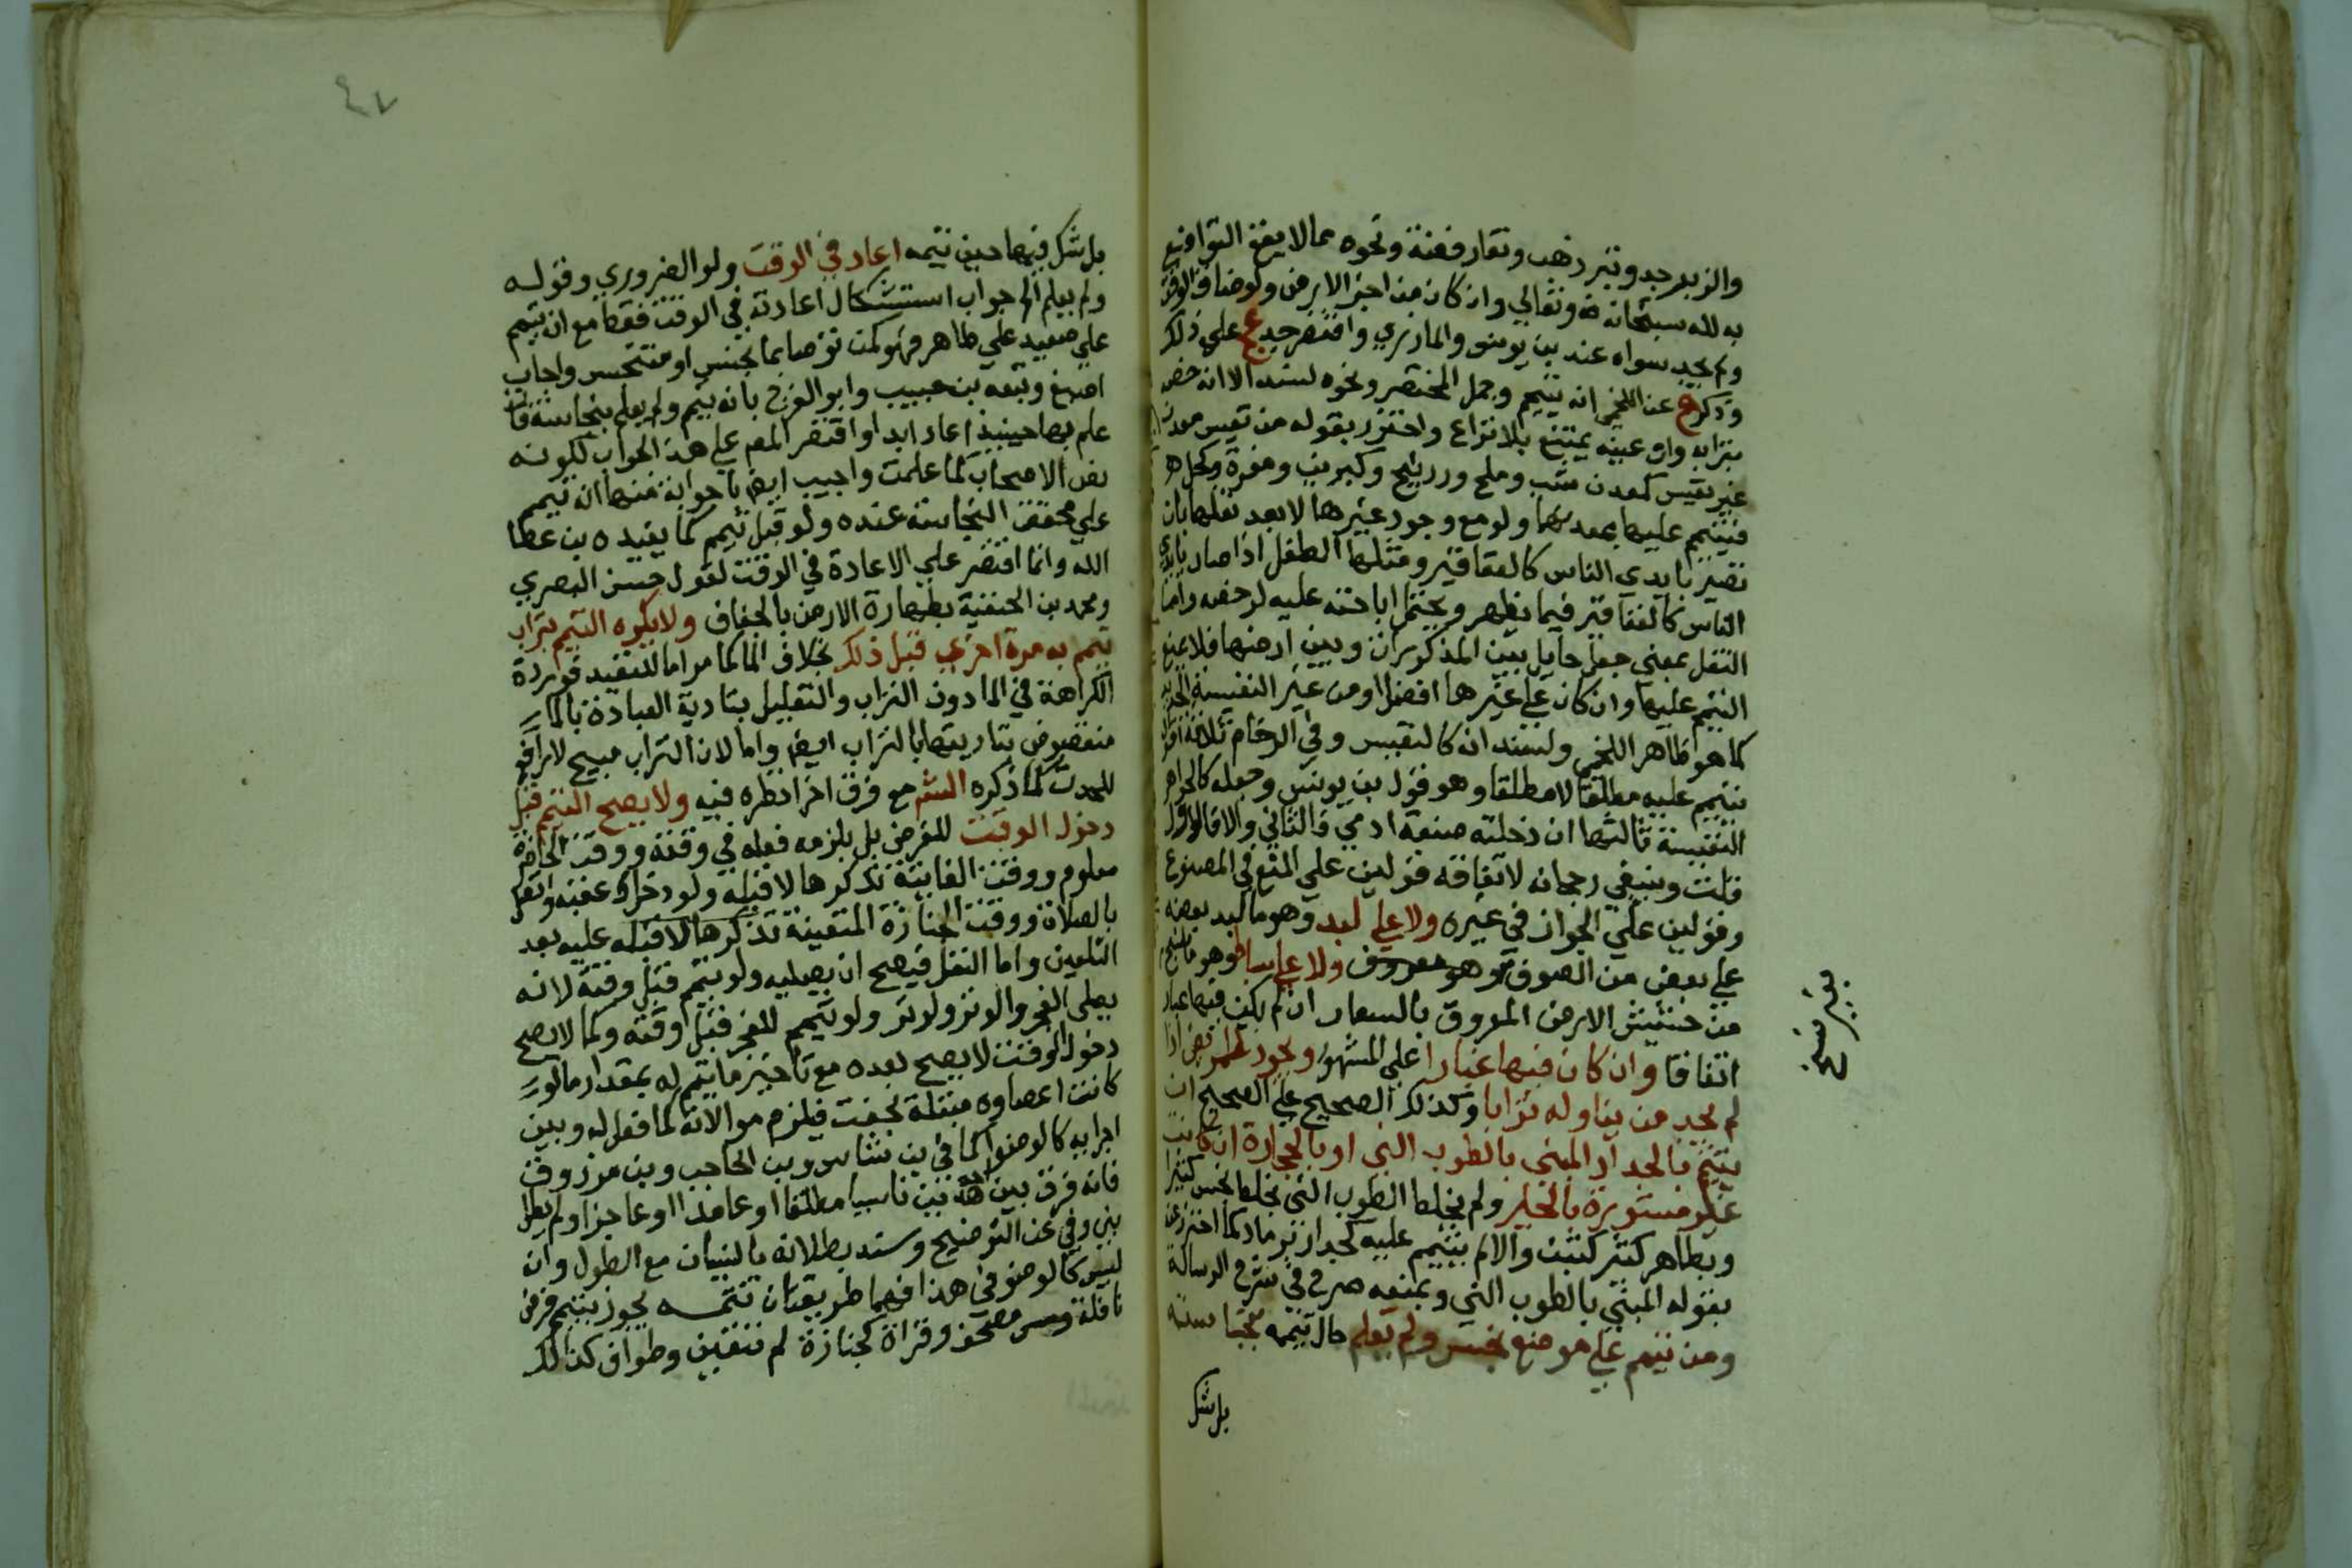 والزبرجد وتبر ذهب ونقار فضة ونحوه مما لا يقع التواضع
به لله سبحانه وتعالى وان كان من اجز الارض ولو ضاق الوقت
ولم يجد سواه عند بن يونس والمازري واقتصر عج على ذلك
وذكر ح عن اللخمي انه يتيمم وجمل المختصر ونحوه لسند الا انه خص
بترابه وان عينه يمتنع بلا نزاع واحترز بقوله من نفيس معدن
غير نفيس كمعدن شب وملح وزرنيخ وكبريت ومغرة وكحل
فيتيمم عليها بمعدنها ولو مع وجود غيرها لا بعد نقلها بان
تصير بايدي الناس كالعقاقير ومثلها الطفل اذا صار بايدي
الناس كالعقاقير فيما يظهر ويحتمل اباحته عليه لرخصه واما
النقل بمعنى جعل حايل بين المذكورات وبين ارضها فلا يمنع
التيمم عليها وان كان على غيرها افضل ومن غير النفيسة الحديد
كما هو ظاهر اللخمي ولسند انه كالنفيس وفي الرخام ثلاثة اقوال
يتيمم عليه مطلقا لا مطلقا وهو قول بن يونس وجعله كالجواهر
النفيسة ثالثها ان دخلته صنعة ادمي فالثاني والا فالاول
قلت وينبغي رجحانه لاتفاقه قولين على المنع في المصنوع
وقولين على الجواز في غيره ولا على لبد وهو ما لبد بعضه
على بعض من الصوف وهو معروف ولا على بساط وهو ما نسج
من حشيش الارض المعروق بالسمار ان لم يكن فيها غبار
اتفاقا وان كان فيها غبارا على المشهور ويجوز للمريض اذا
لم يجد من يناوله ترابا وكذلك الصحيح على الصحيح ان
يتيمم بالجدار المبني بالطوب الني او بالحجارة ان كانت
غير مستورة بالجير ولم يخلط الطوب الني بخلط نجس كثيرا
وبطاهر كثر كتبن والا لم يتيمم عليه كجدار نرماد كما احترز عن
بقوله المبني بالطوب الني وبمنعه صرح في شرح الرسالة
ومن تيمم على موضع نجس ولم يعلم حال تيممه بنجاسته
بل شك
بغير نسج
٤٧
بل شك فيها حين تيممه اعاد في الوقت ولو الضروري وقوله
ولم يعلم الى جواب استشكال اعادته في الوقت فقط مع ان تيمم
على صعيد على طاهر فهو كمن توضا بما نجس او متنجس واجاب
اصبغ وتبعه بن حبيب وابو الفرج بانه تيمم ولم يعلم بنجاسة فان
علم بها حينيذ اعاد ابدا واقتصر المص على هذا الجواب لكونه
نص الاصحاب كما علمت واجيب ايضا باجوابة منها ان تيمم
على مخفف النجاسة عنده ولو قبل تيمم كما يفيده بن عطا
الله وانما اقتصر على الاعادة في الوقت لقول حسن البصري
ومحمد بن الحنفية بطهارة الارض بالجفاف ولا يكره التيمم بتراب
تيمم به مرة اخرى قبل ذلك بخلاف الما كما مر اما للتعبد فورد
الكراهة في الما دون التراب والتعليل بتادية العبادة بالما
منقوض بتاديتها بالتراب ايضا واما لان التراب مبيح لا رافع
للحدث كما ذكره الشم مع فرق اخر انظره فيه ولا يصح التيمم قبل
دخول الوقت للفرض بل يلزمه فعله في وقته ووقت الحاضرة
معلوم ووقت الفايتة تذكرها لا قبله ولو دخل عقبه واتصل
بالصلاة ووقت الجنازة المتعينة تذكرها لا قبله عليه بعد
التكفين واما النفل فيصح ان يصليه ولو تيمم قبل وقته لانه
يصلي الفجر والوتر ولو تر ولو تيمم للفجر قبل وقته وكما لا يصح
دخول الوقت لا يصح بعده مع تاخير ما يتيمم له بمقدار ما لو
كانت اعضاوه مبتلة لجفت فيلزم موالاته لما فعل له وبين
اجزايه كالوضوا كما في بن شاس وبن الحاجب وبن مرزوق
فانه فرق بين هذا بين ناسيا مطلقا او عامدا او عاجزا ولم يطل
بنى وفي عن التوضيح وسند بطلانه بالنسيان مع الطول وان
ليس كالوضو في هذا فهما طريقتان تتمـــه يجوز بتيمم فرض
نافلة ومس مصحف وقراة كجنازة لم تتعين وطواف كذلك